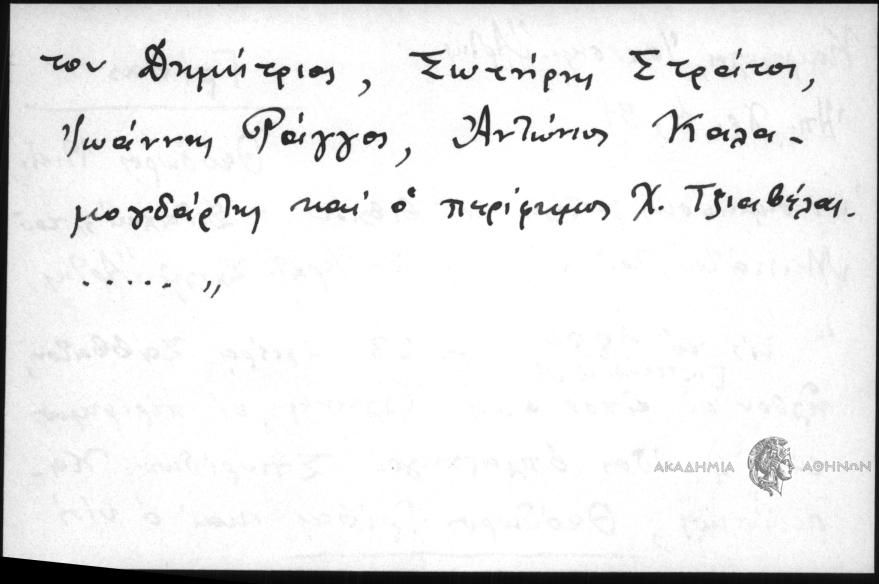 του Δημήτριος, Σωτήρης Στράτος,
Ἰωάννης Ράγγος, Ἀντώνιος Καλα-
μογδάρτης καί ὁ περίφημος Χ. Τζιαβέλας.
...... „
ΑΚΑΔΗΜΙΑ ΑΘΗΝΩΝ